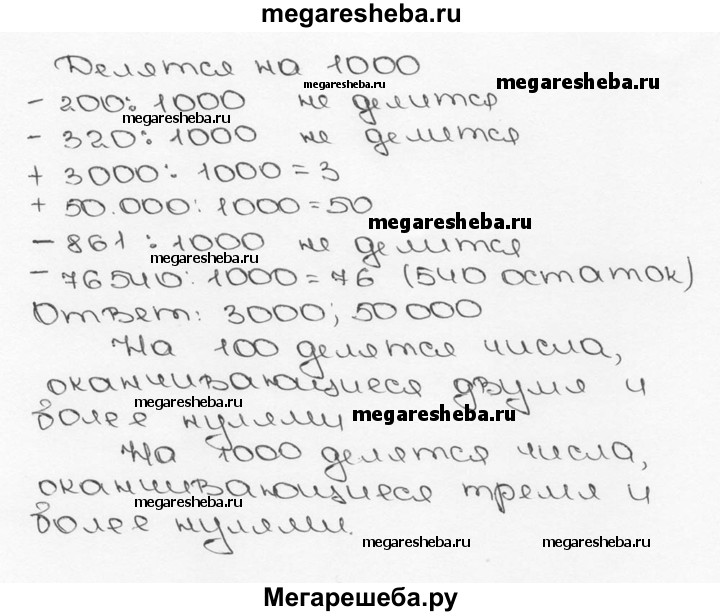 megaresheba.ru
Делятся на 1000
megaresheba.ru
megaresheba.ru
- 200: 1000 не делится
megaresheba.ru
- 320: 1000 не делится
+ 3000: 1000 = 3
+ 50.000: 1000 = 50
megaresheba.ru
- 861 : 1000 не делится
megaresheba.ru
- 76540: 1000 = 76 (540 остаток)
Ответ: 3000; 50000
На 100 делятся числа,
оканчивающиеся двумя и
megaresheba.ru
более нулями
megaresheba.ru
На 1000 делятся числа,
оканчивающиеся тремя и
megaresheba.ru
более нулями.
megaresheba.ru
megaresheba.ru
Мегарешеба.ру